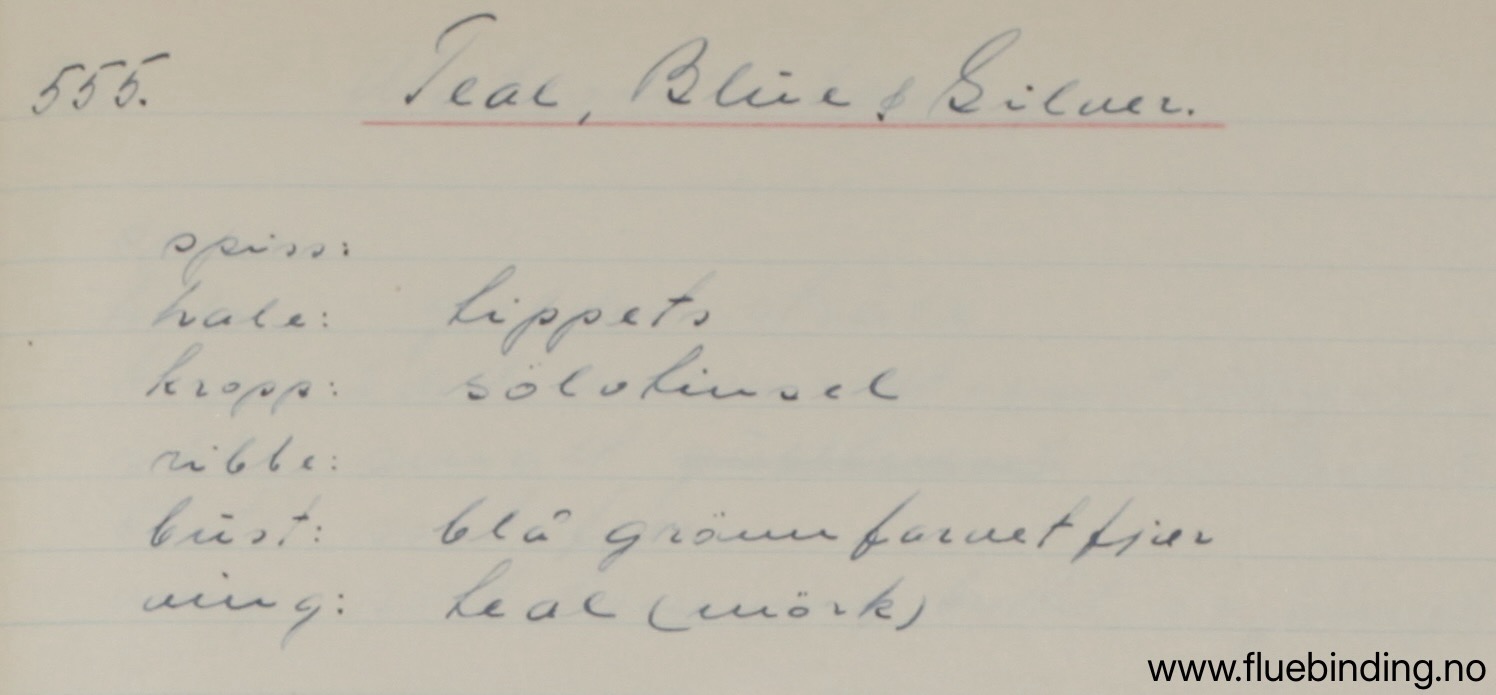 555. Teal, Blue & Silver.
spiss:
hale: tippets
kropp: sölvtinsel
ribbe:
bust: blå grönn farvet fjær
ving: teal (mörk)
www.fluebinding.no